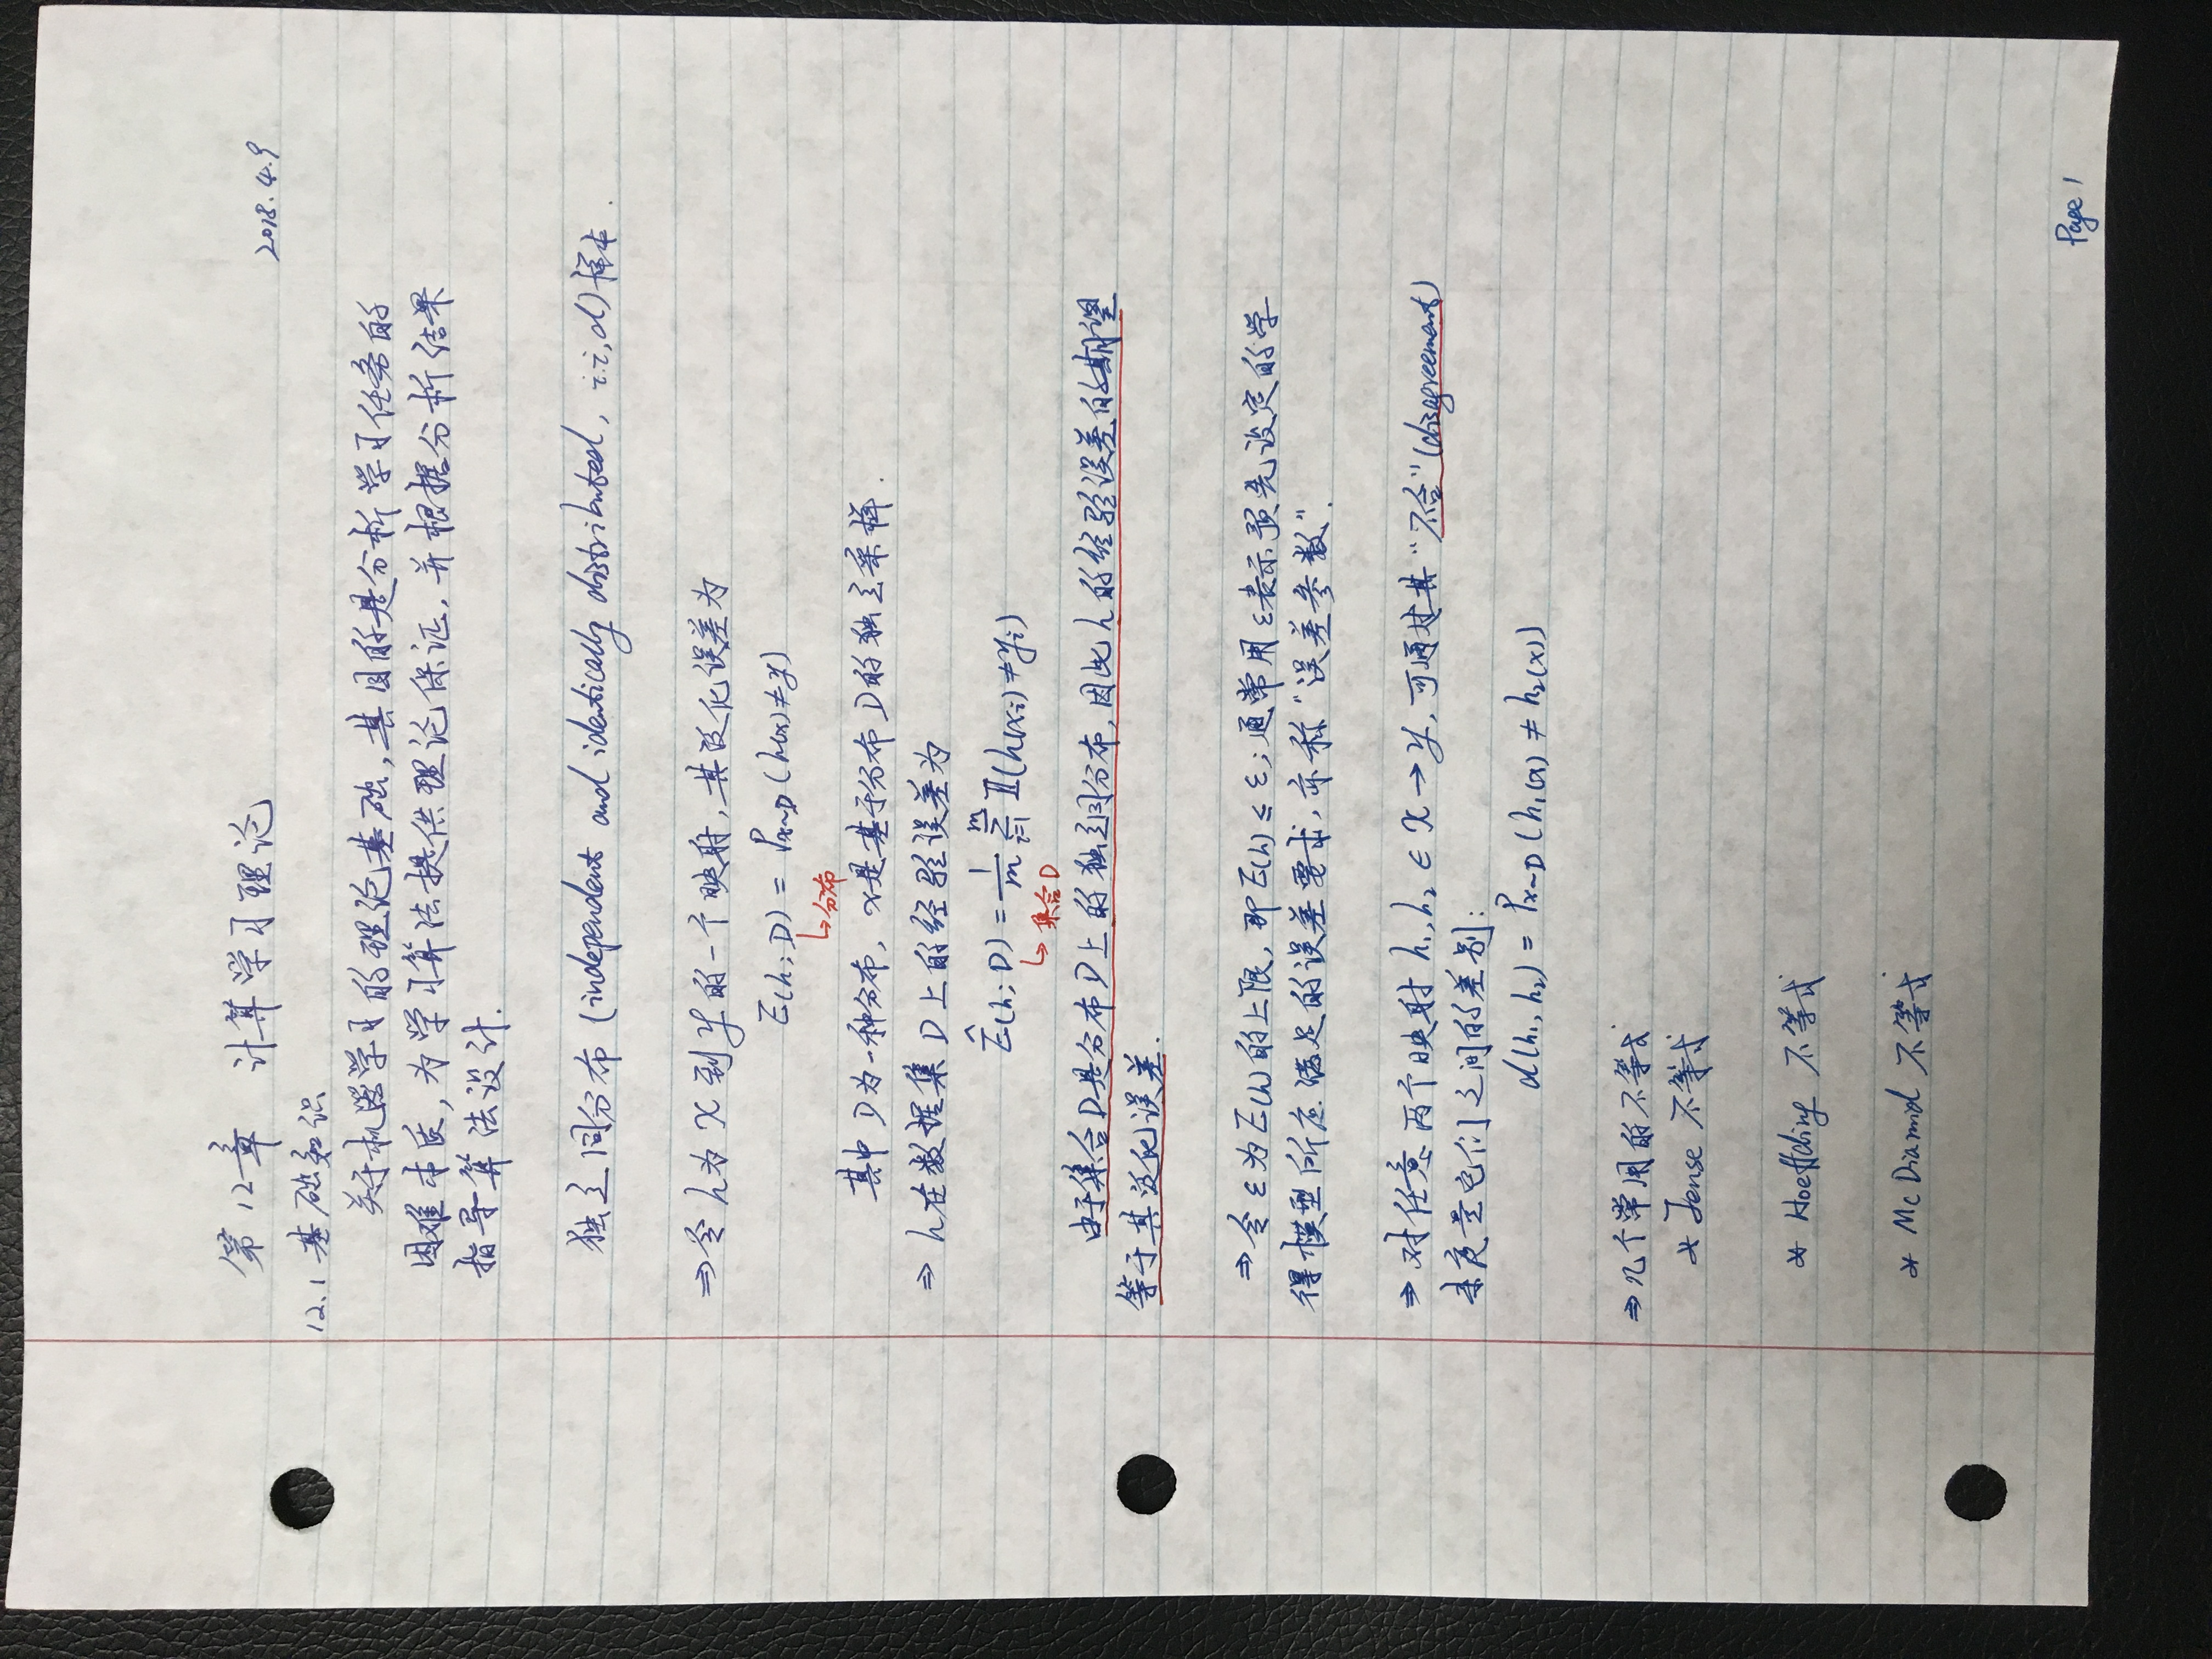 第12章 计算学习理论
2018.4.9
12.1 基础知识
关于机器学习的理论基础,其目的是分析学习任务的
困难本质,为学习算法提供理论保证,并根据分析结果
指导算法设计.
独立同分布 (independent and identically distributed, i.i,d) 样本.
⇒ 令 h 为 X 到 Y 的一个映射,其泛化误差为
E(h; D) = P_{x~D} (h(x) ≠ y)
↳ 分布
其中 D 为一种分布, x是基于分布 D 的独立采样.
⇒ h 在数据集 D 上的经验误差为
Ê(h; D) = 1/m Σ_{i=1}^{m} 𝕀(h(x_i) ≠ y_i)
↳ 集合D
由于集合D是分布D上的独立同分布,因此 h 的经验误差的期望
等于其泛化误差.
⇒ 令 ε 为 E(h) 的上限, 即 E(h) ≤ ε; 通常用 ε 表示预先设定的学
得模型所应满足的误差要求, 亦称 “误差参数”.
⇒ 对任意两个映射 h₁, h₂ ∈ X → Y, 可通过其 “不合” (disagreement)
来度量它们之间的差别:
d(h₁, h₂) = P_{x~D} (h₁(x) ≠ h₂(x))
⇒ 几个常用的不等式
* Jense 不等式
* Hoeffding 不等式
* McDiamid 不等式
Page 1